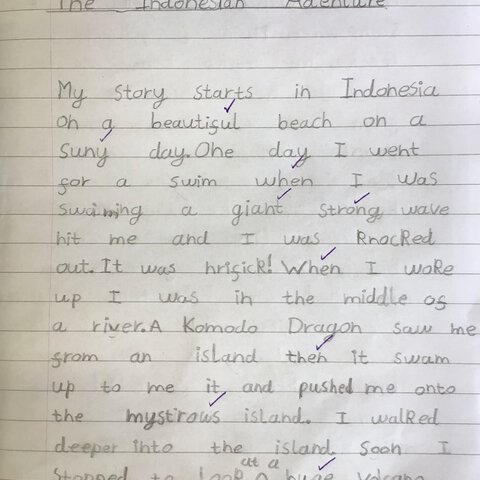 The Indonesian Adenture
My story starts in Indonesia
on a beautiful beach on a
suny day. One day I went
for a swim when I was
swaiming a giant strong wave
hit me and I was knocked
out. It was hrifick! When I woke
up I was in the middle of
a river. A Komodo Dragon saw me
from an island then it swam
up to me it and pushed me onto
the mystirows island. I walked
deeper into the island. Soon I
at a
stopped to look a huge volcano